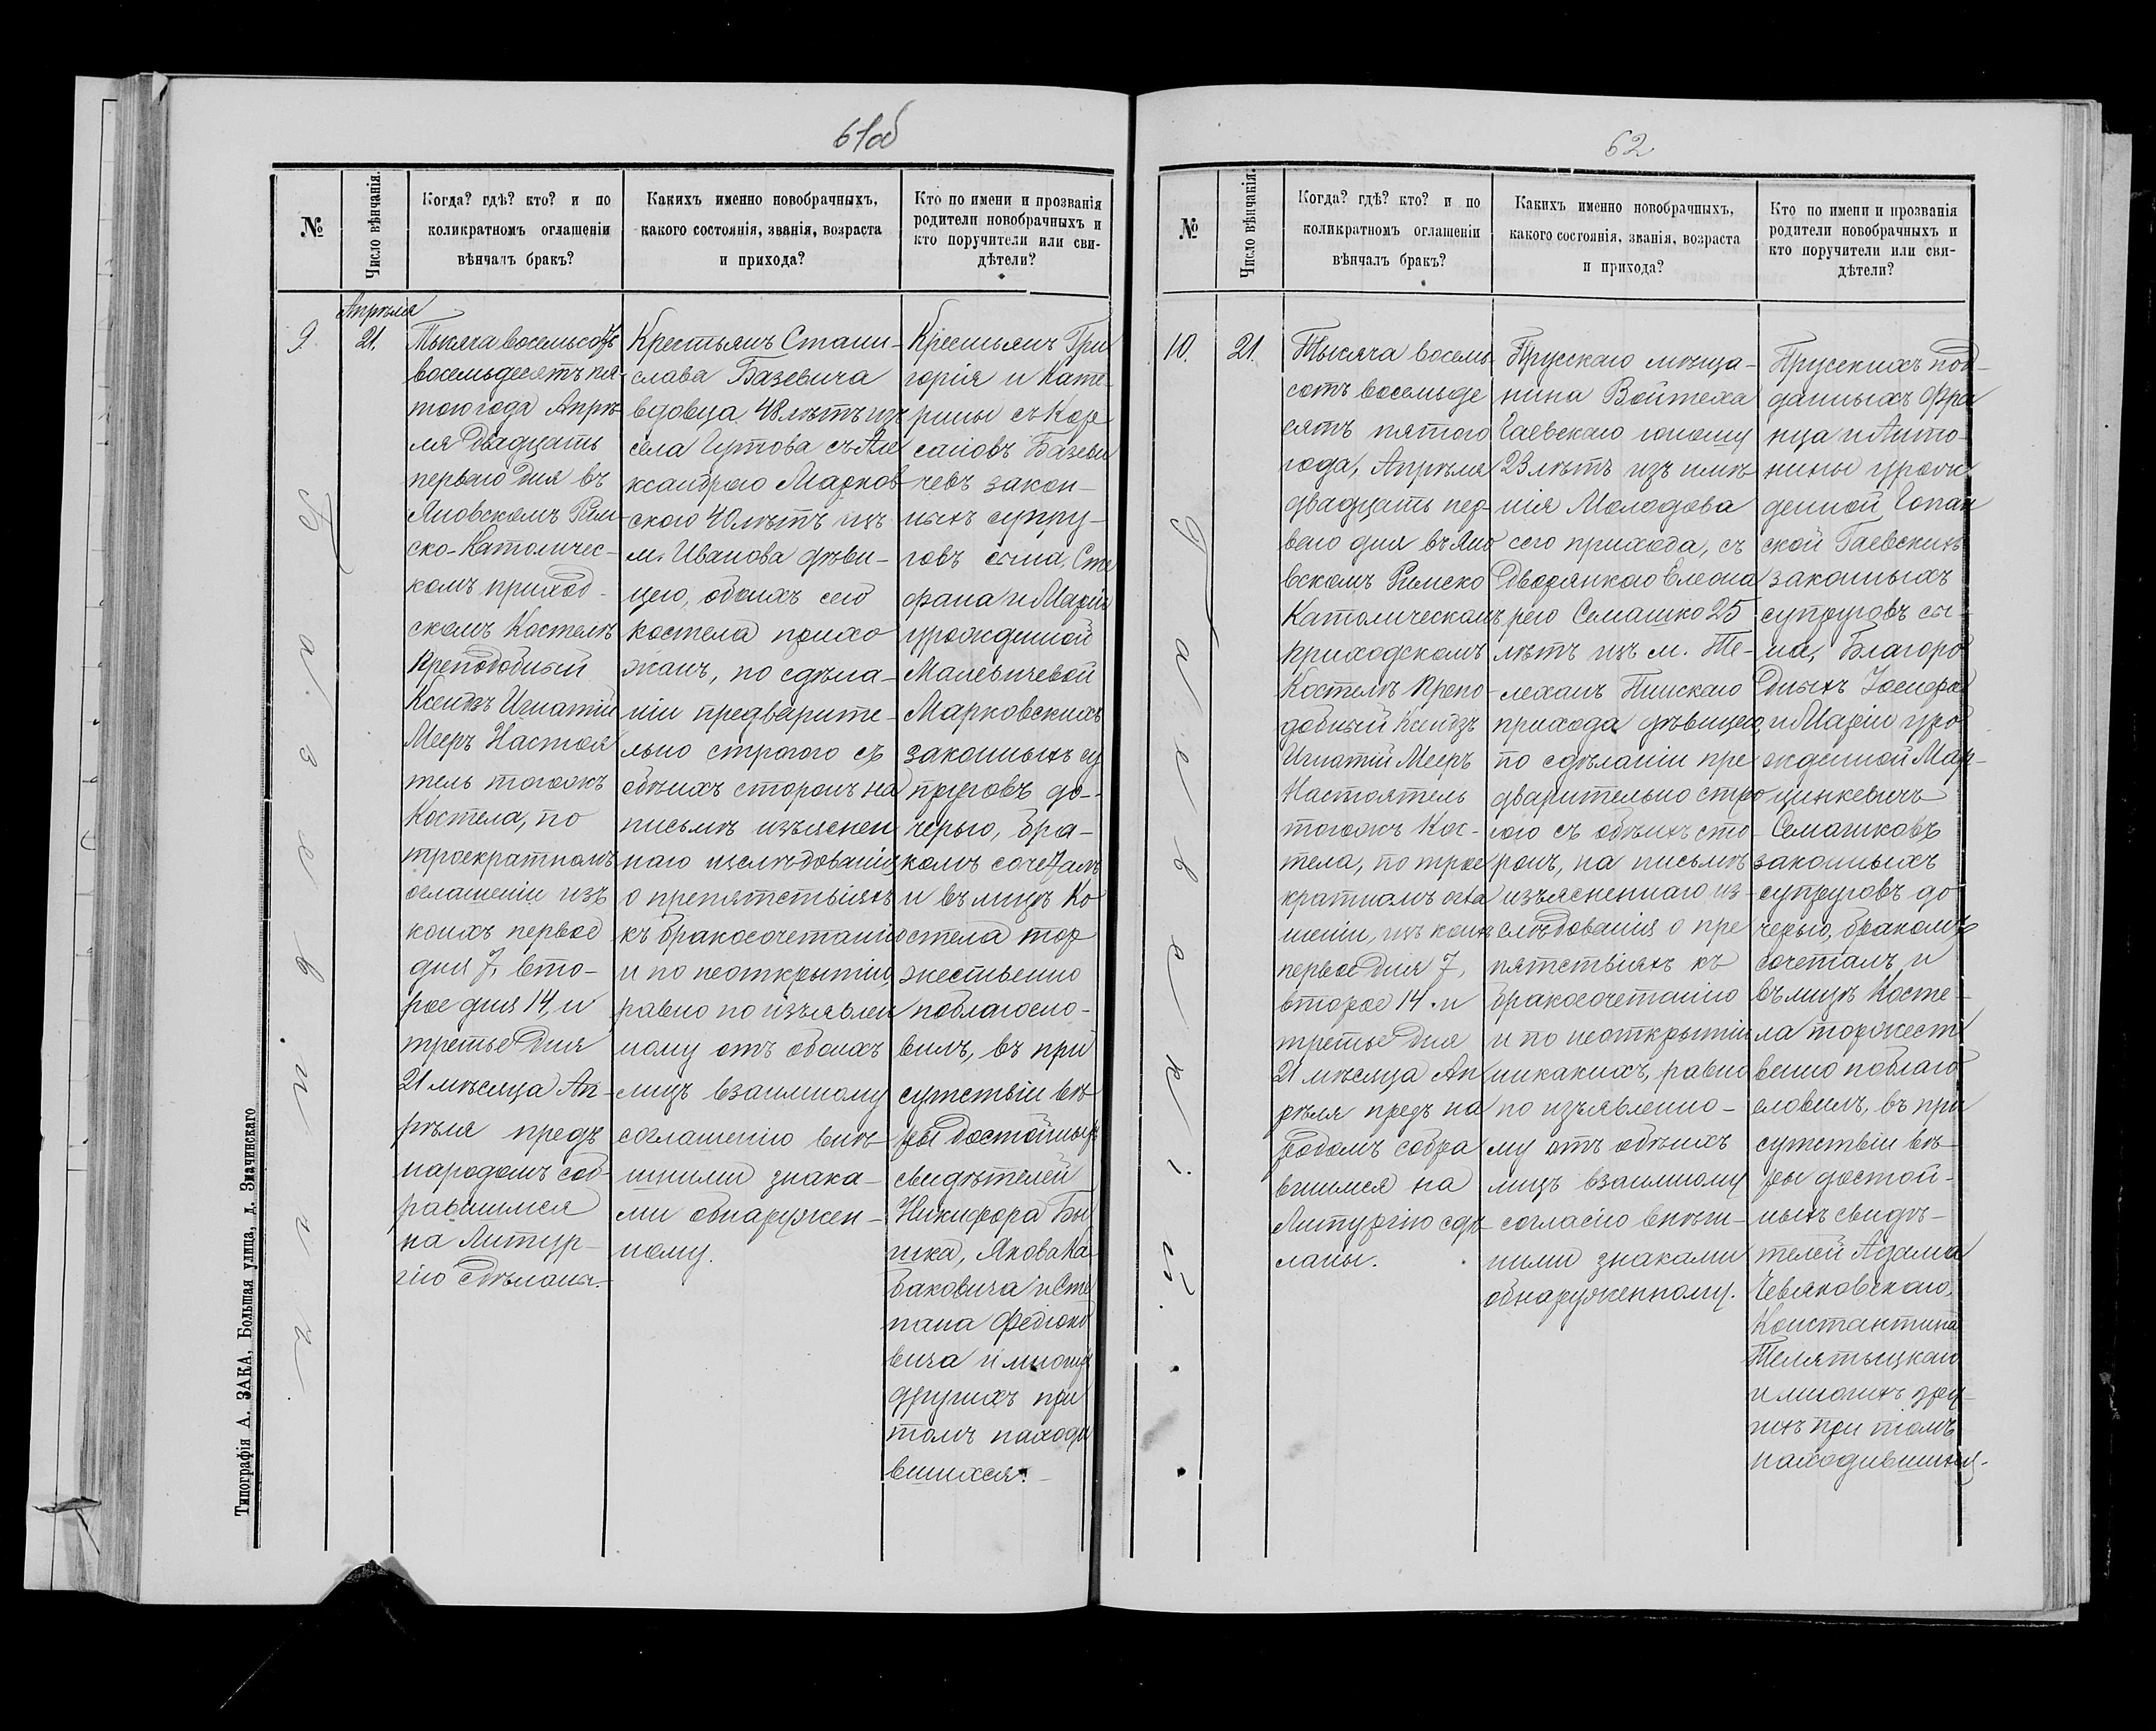 61об
№
Число вѣнчанія.
Когда? гдѣ? кто? и по
коликратномъ оглашеніи
вѣнчалъ бракъ?
Какихъ именно новобрачныхъ,
какого состоянія, званія, возраста
и прихода?
Кто по имени и прозванія
родители новобрачныхъ и
кто поручители или сви-
дѣтели?
Апрѣля
9.
21.
Тысяча восемьсотъ
восемьдесятъ пя-
того года Апрѣ
ля двадцать
перваго дня въ
Яновскомъ Рим-
ско-Католичес-
комъ приход-
скомъ Костелѣ
Преподобный
Ксендзъ Игнатій
Мееръ Настоя
тель тогожъ
Костела, по
троекратномъ
оглашеніи изъ
коихъ первое
дня 7, вто-
рое дня 14, и
третье дня
21 мѣсяца Ап-
рѣля предъ
народомъ соб-
равшимся
на Литур-
гію сдѣлана.
Крестьянъ Стани-
слава Базевича
вдовца 48 лѣтъ изъ
села Гутова съ Але
ксандрою Марков
скою 40 лѣтъ изъ
м. Иванова дѣви-
цею, обоихъ сего
костела прихо
жанъ, по сдѣла-
ніи предварите-
льно строгого съ
обѣихъ сторонъ на
письмѣ изъяснен
наго изслѣдованія
о препятствіяхъ
къ бракосочетанію
и по неоткрытіи,
равно по изъявлен
ному отъ обоихъ
лицъ взаимному
соглашенію внѣ-
шними знака-
ми обнаружен-
ному.
Крестьянъ Гри
горія и Кате-
рины съ Кор
саковъ Базеви
чевъ закон-
ныхъ супру-
говъ сына, Сте
фана и Маріи
урожденной
Малевичевой
Марковскихъ
законныхъ су
пруговъ до-
черью, бра-
комъ сочеталъ
и въ лицѣ Ко
стела тор
жественно
поблагосло-
вилъ, въ при
сутствіи вѣ-
ры достойныхъ
свидѣтелей
Никифора Бы
шка, Якова Ка
баковича и Сте
пана Федюко
вича и многихъ
другихъ при
томъ находи
вшихся.
Базевичъ.
Типографія А. ЗАКА, Большая улица, д. Змачинскаго
62
№
Число вѣнчанія.
Когда? гдѣ? кто? и по
коликратномъ оглашеніи
вѣнчалъ бракъ?
Какихъ именно новобрачныхъ,
какого состоянія, званія, возраста
и прихода?
Кто по имени и прозванія
родители новобрачныхъ и
кто поручители или сви-
дѣтели?
10.
21.
Тысяча восемь
сотъ восемьде
сятъ пятого
года, Апрѣля
двадцать пер-
ваго дня въ Яно
вскомъ Римско
Католическомъ
приходскомъ
Костелѣ Препо-
добный Ксендзъ
Игнатій Мееръ
Настоятель
тогожъ Кос-
тела, по трое
кратномъ огла
шеніи, изъ коихъ
первое дня 7,
второе 14 и
третье дня
21 мѣсяца Ап
рѣля предъ на
родомъ собра
вшимся на
Литургію сдѣ
ланы.
Прусскаго мѣща-
нина Войтеха
Гаевскаго юношу
23 лѣтъ изъ имѣ-
нія Молодова
сего прихода, съ
Дворянкою Елеоно
рою Семашко 25
лѣтъ изъ м. Те-
леханъ Пинскаго
прихода дѣвицею,
по сдѣланіи пре
дварительно стро
гого съ обѣихъ сто-
ронъ, на письмѣ
изъясненнаго из-
слѣдованія о пре
пятствіяхъ къ
бракосочетанію
и по неоткрытіи
никакихъ, равно
по изъявленно-
му отъ обѣихъ
лицъ взаимному
согласію внѣш-
ними знаками
обнаруженному.
Прусскихъ под-
данныхъ Фра
нца и Анто-
нины урож
денной
Гаевскихъ
законныхъ
супруговъ сы-
на, Благоро
дныхъ Іосифа
и Маріи уро
жденной Мар-
цинкевичъ
Семашковъ
законныхъ
супруговъ до
черью, бракомъ
сочеталъ и
въ лицѣ Косте-
ла торжест
венно поблаго
словилъ, въ при
сутствіи вѣ-
ры достой-
ныхъ свидѣ-
телей Адама
Чевяковскаго,
Константина
Телятыцкаго
и многихъ дру-
гихъ при томъ
находившихся.
Гаевскій.